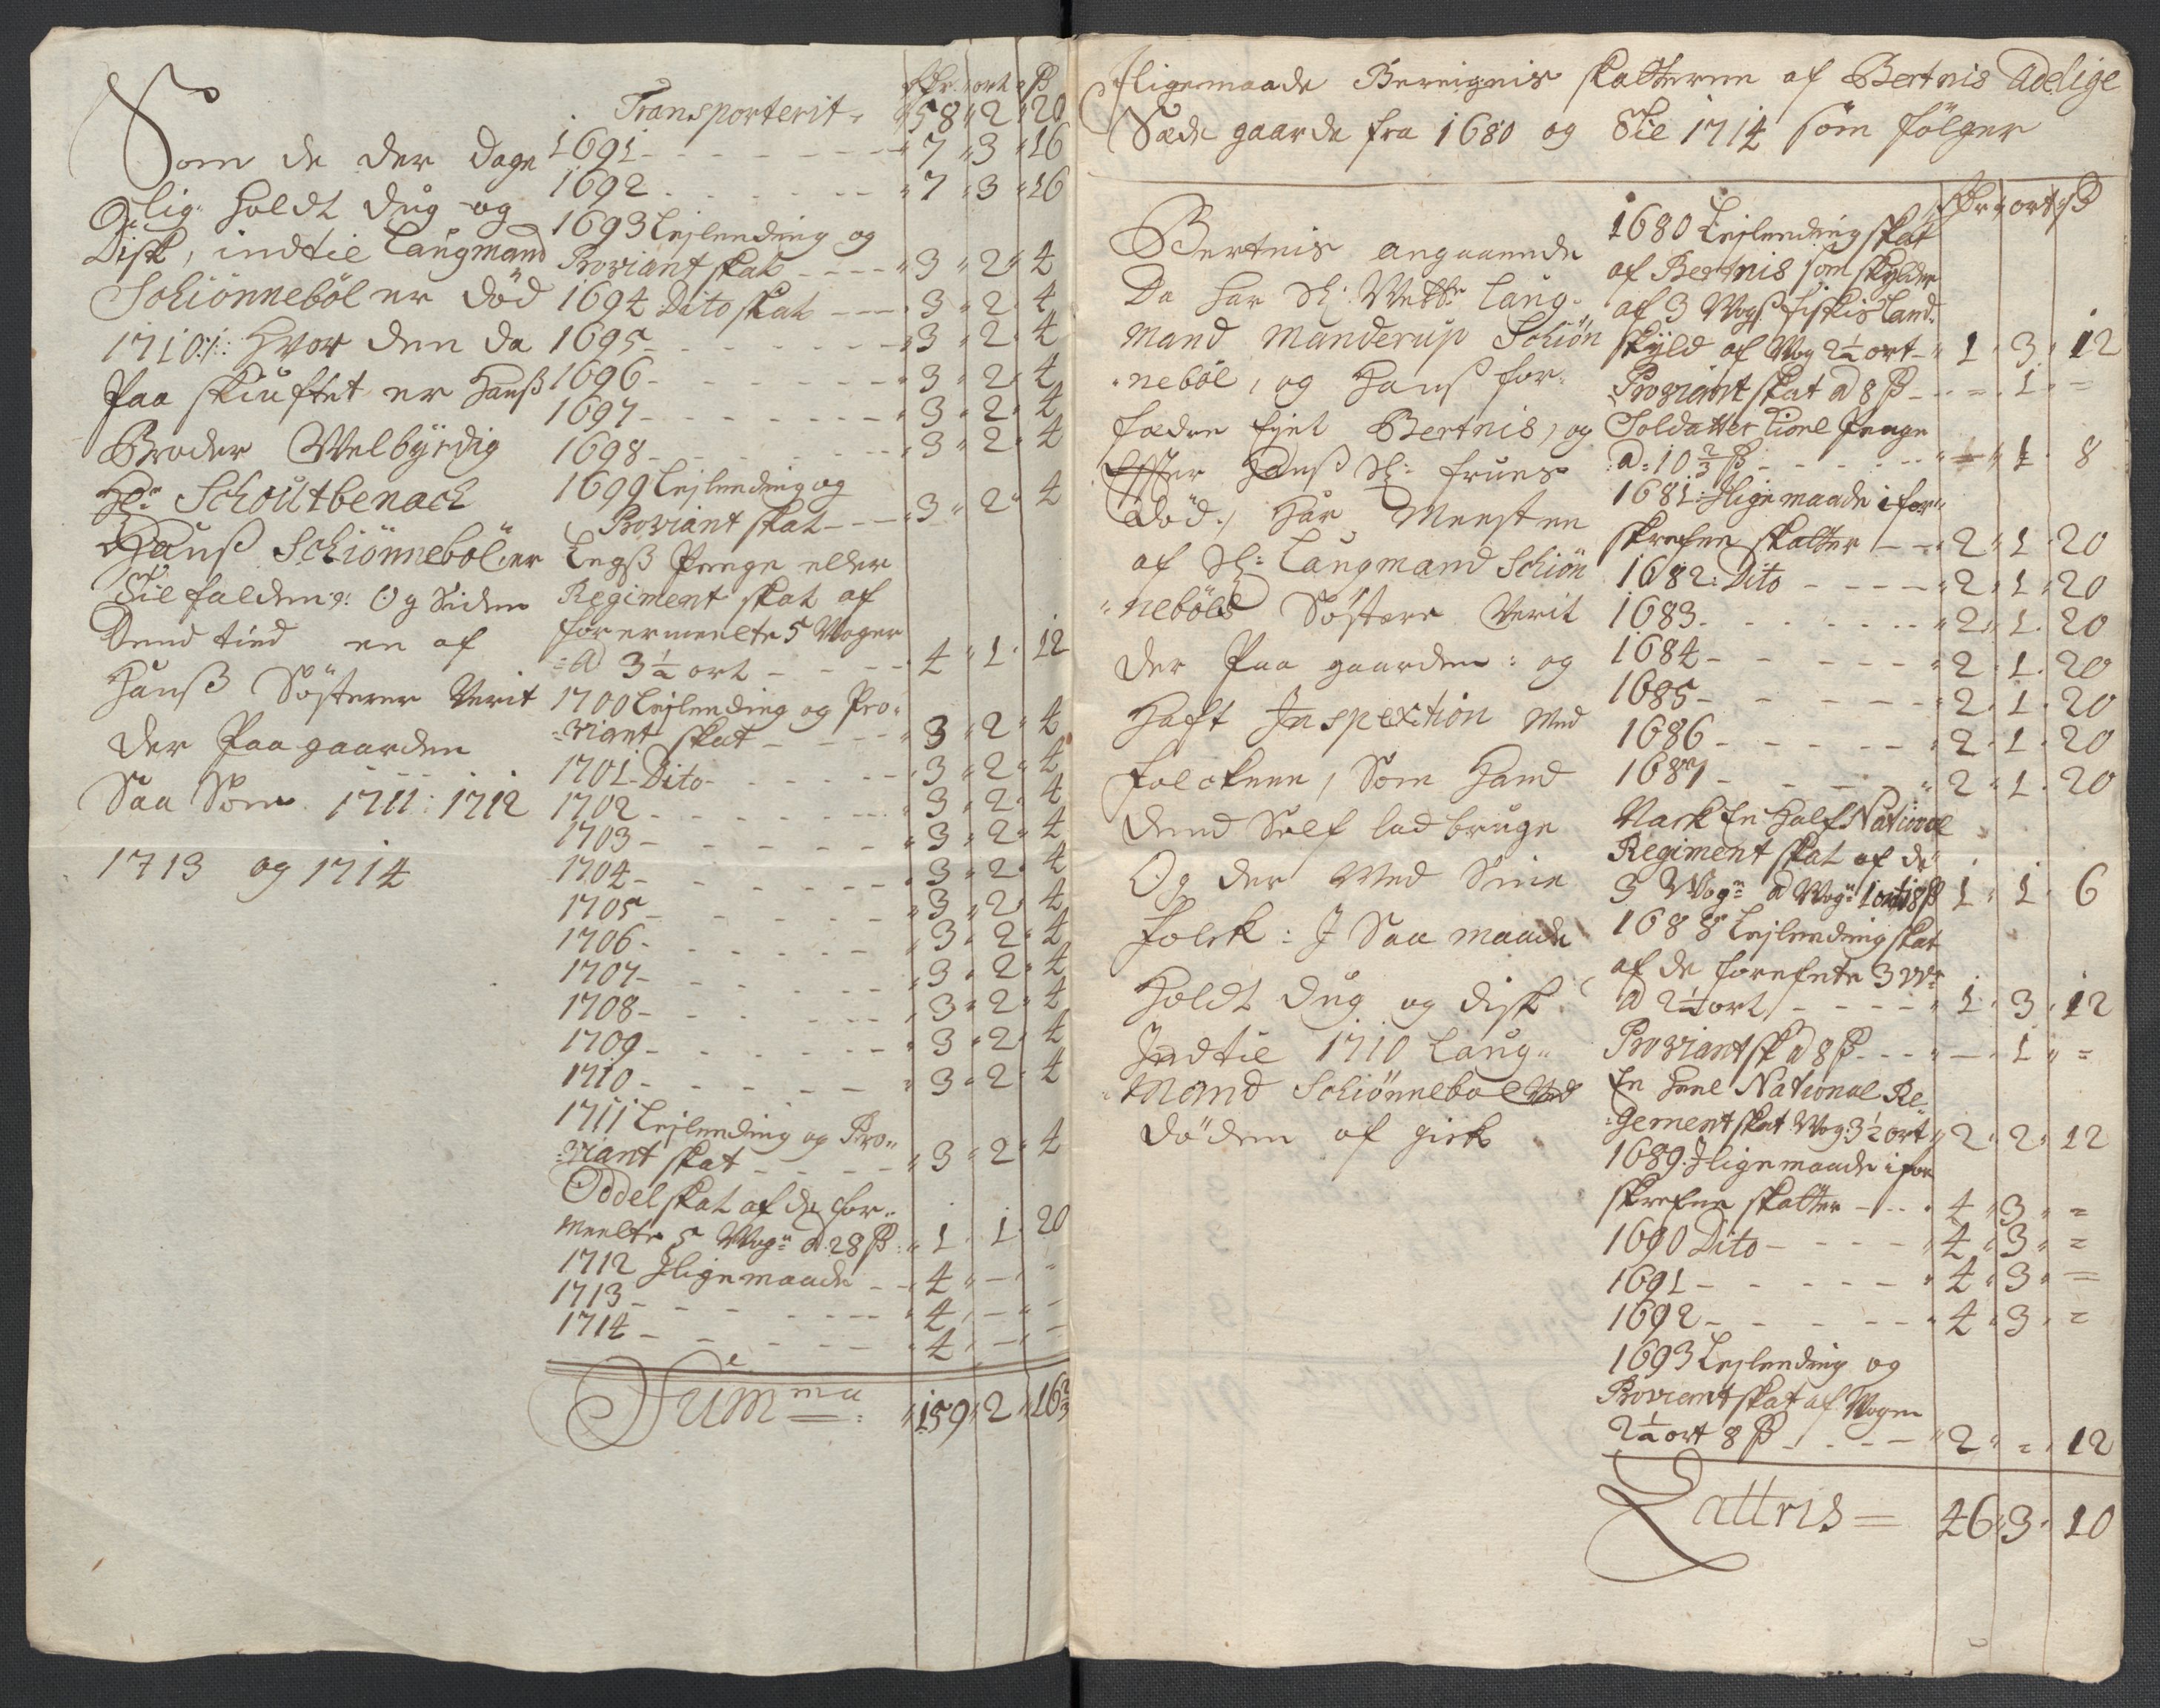 Som de der dage
lig holdt dug og
Disk, indtil Laugmand
Schiønnebøl er død
1710:/: Hvor den da
Paa skiuftet er Hanß
Broder Welbyrdig
Hr Schoutbenach
Hanß Schiønnebøl er
Tilfalden: Og Siden
Dend tiid en af
Hanß Søsterer Verit
der Paa gaarden
Saa Som 1711: 1712
1713 og 1714
Rdr ort ß
Transporterit 58 2 20
1691 - - - 7 3 16
1692 - - - 7 3 16
1693 Lejlending og
Proviant skat - - - 3 2 4
1694 Dito skat - - - 3 2 4
1695 - - - 3 2 4
1696 - - - 3 2 4
1697 - - - 3 2 4
1698 - - - 3 2 4
1699 Lejlending og
Proviant skat - - - 3 2 4
Legß Penge eller
Regiment skat af
forermeelte 5 Woger
a 3 1/2 ort - - - 4 1 12
1700 Lejlending og Pro-
viant skat - - - 3 2 4
1701 Dito - - - 3 2 4
1702 - - - 3 2 4
1703 - - - 3 2 4
1704 - - - 3 2 4
1705 - - - 3 2 4
1706 - - - 3 2 4
1707 - - - 3 2 4
1708 - - - 3 2 4
1709 - - - 3 2 4
1710 - - - 3 2 4
1711 Lejlending og Pro-
viant skat - - - 3 2 4
Oddel skat af de for-
meelte 5 Wogr a 28 ß 1 1 20
1712 Jligemaade - - 4 - -
1713 - - - 4 - -
1714 - - - 4 - -
Summa 159 2 16 2/3
Jligemaade Bereignis skatterne af Bertnis Adelige
Sæde gaarde fra 1680 og Til 1714 som følger
Bertnis angaaende
Da har Sl: Welbr Laug-
mand Manderup Schiøn
nebøl, og Hanß for-
fædre Ejet Bertnis, og
Efter Hanß Sl: Frues
død, Har Meesten
af Sl: Laugmand Schiøn
nebøls Søstere Verit
der Paa gaarden: og
Haft Inspection Med
Folckene, Som Hand
dend Self lod bruge
Og der Med Sine
Folck: J Saa maade
Holdt Dug og disk
Indtil 1710 Laug-
mand Schiønnebøl Ved
Døden af gick
Rdr ort ß
1680 Lejlending skat
af Bertnis som skylder
af 3 Wogß Fiskis Land-
skyld af Wog 2 1/4 ort - 1 3 12
Proviant skat a 8 ß - - = 1 =
Soldatter Tione Penge
a 10 2/3 ß - - - 1 8
1681: Jligemaade i for-
skrefne skatter - - 2 1 20
1682: Dito - - - 2 1 20
1683 - - - 2 1 20
1684 - - - 2 1 20
1685 - - - 2 1 20
1686 - - - 2 1 20
1687 - - - 2 1 20
Nock En Half National
Regiment skat af de
3 Wogr a Wog 1 ort 18 ß 1 1 6
1688 Lejlending skat
af de forefnte 3 Wr
a 2 1/4 ort - - - 1 3 12
Proviant sk a 8 ß - - - 1 =
En Heel National Re-
gement skat Wog 3 1/2 ort 2 2 12
1689. Jligemaade i for
skrefne skatter - - 4 3 =
1690 Dito - - - 4 3 =
1691 - - - 4 3 =
1692 - - - 4 3 =
1693 Lejlending og
Proviant skat af Wogen
2 1/4 ort 8 ß - - - 2 = 12
Lattris = 46 3 10